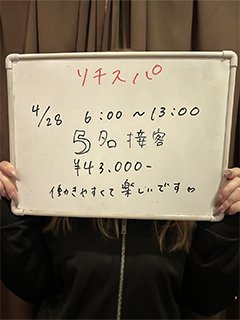 リチスパ
4/28 6:00～13:00
5名接客
¥43.000-
働きやすくて楽しいです